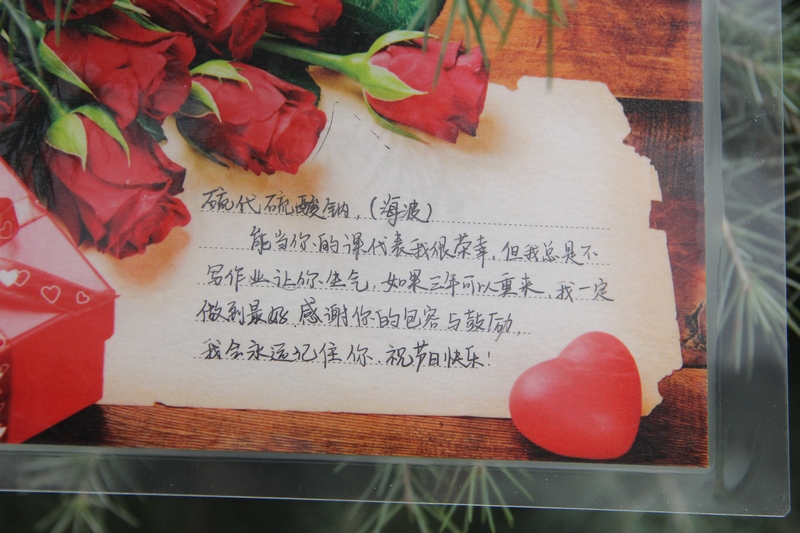 硫代硫酸钠，(海波)
能当你的课代表我很荣幸，但我总是不
写作业让你生气，如果三年可以重来，我一定
做到最好 感谢你的包容与鼓励，
我会永远记住你 祝节日快乐！